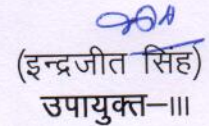 (इन्द्रजीत सिंह)
उपायुक्त–III